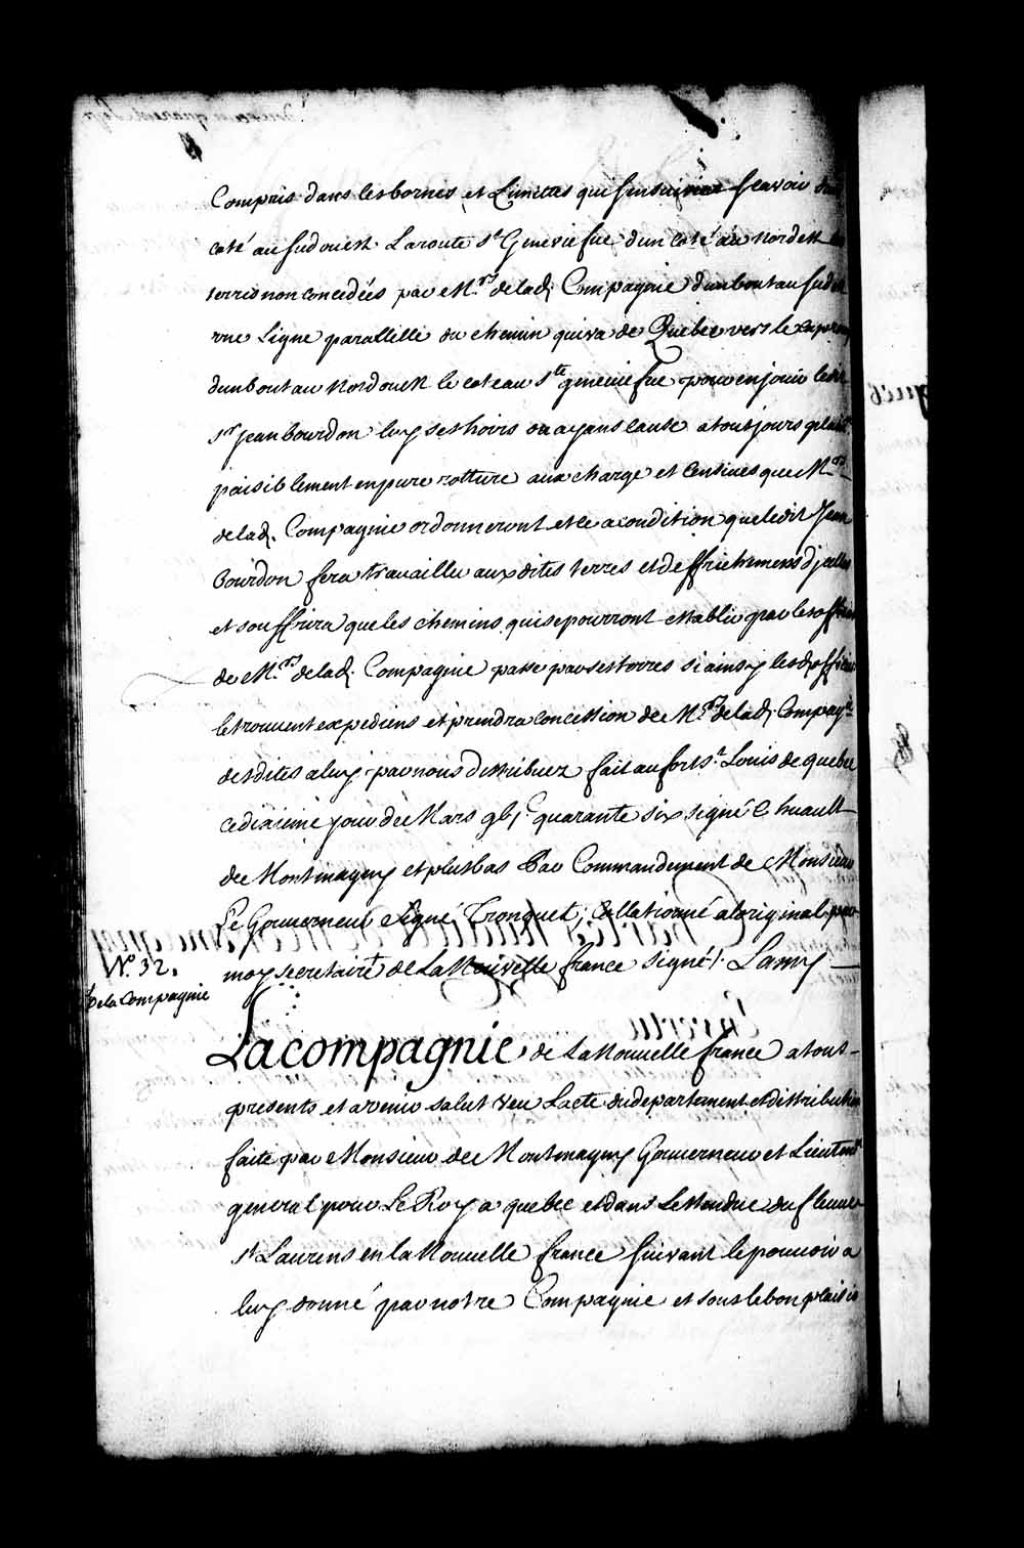 Compris dans les bornes et Limittes qui sensuivent scavoir dun
costé au sudouest Laroute Ste Geneviefue dun costé au nordest les
terres non concedées par Mrs delad. Compagnie dun bout au sudest
vne Ligne parallelle du chemin qui va de Quebec vers le cap rouge
dun bout au nordouest le coteau Ste geneviefue pour en jouir ledit
Sr Jean bourdon luy ses hoirs ou ayans cause a toutjours
paisiblement en pure rotture aux charge et Censives que Mrs
delad. Compagnie ordonneront et a condition que ledit Jean
Bourdon fera travailler aux dites terres et deffrichemens djcelles
et souffrira que les chemins qui se pourront establir par les officiers
de Mrs delad. Compagnie passe par ses terres si ainsy lesd officiers
le trouvent expediens et prendra concession de Mrs delad. Compagie
desdites a luy par nous distribuez fait au fort St Louis de quebec
ce dixieme jour de Mars quarante six signé C huault
de Montmagny et plus bas Par Commandement de Monsieur
Le Gouverneur signé Tronquet, Collationné a loriginal par
moy secretaire de La Nouvelle france signé /. Lamy
No. 32.
De la Compagnie
La compagnie de La Nouvelle france a tous
presents et avenir salut veu Lacte du departement et distribution
faite par Monsieur de Montmagny Gouverneur et Lieutent
general pour Le Roy a quebec et dans Lestendue du fleuve
St Laurens en la Nouvelle france suivant le pouvoir a
luy donné par notre Compagnie et sous le bon plaisir